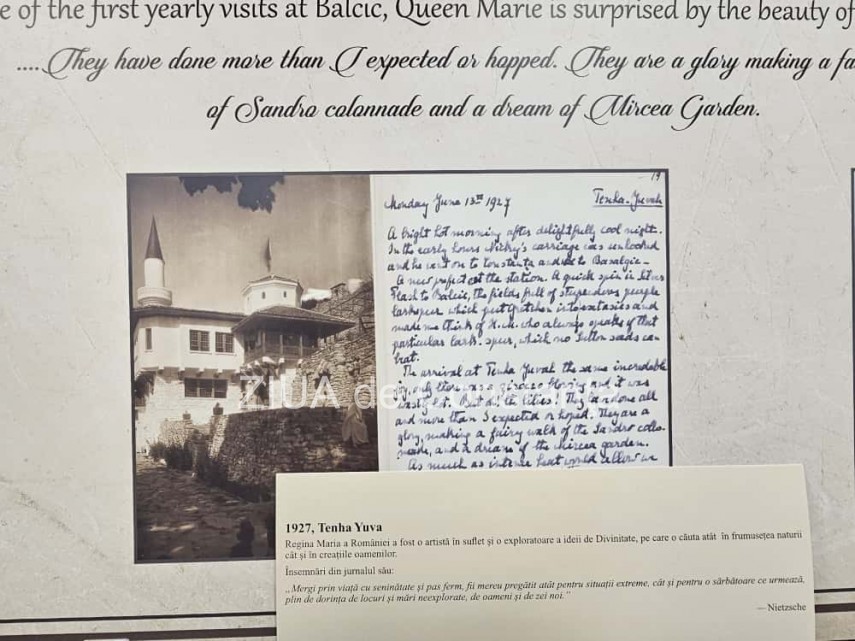 e of the first yearly visits at Balcic, Queen Marie is surprised by the beauty of
....They have done more than I expected or hopped. They are a glory making a fa
of Sandro colonnade and a dream of Mircea Garden.
19
Monday June 13th 1927 Tenha-Juvah
A bright hot morning after delightfully cool night.
In the early hours Nicky's carriage was unhooked
and he went on to Constanta and to Bazalgic –
A new project at the station. A quick spin in
to Balcic, the fields full of stupendous purple
larkspur which put Gretchen into extasies and
made me think of K.M. who always speaks of that
particular lark-spur, which no Sutton seeds can
beat.
The arrival at Tenha Juvah the same incredible
joy, only there was a blowing and it was
But all the lilies! They have done all
and more than I expected or hoped. They are a
glory, making a fairy walk of the Sandro colo-
nade, and a dream of the Mircea garden.
As much as intense heat would allow we
ZIUA de
1927, Tenha Yuva
Regina Maria a României a fost o artistă în suflet și o exploratoare a ideii de Divinitate, pe care o căuta atât în frumusețea naturii
cât și în creațiile oamenilor.
Însemnări din jurnalul său:
„Mergi prin viață cu seninătate și pas ferm, fii mereu pregătit atât pentru situații extreme, cât și pentru o sărbătoare ce urmează,
plin de dorința de locuri și mări neexplorate, de oameni și de zei noi."
— Nietzsche